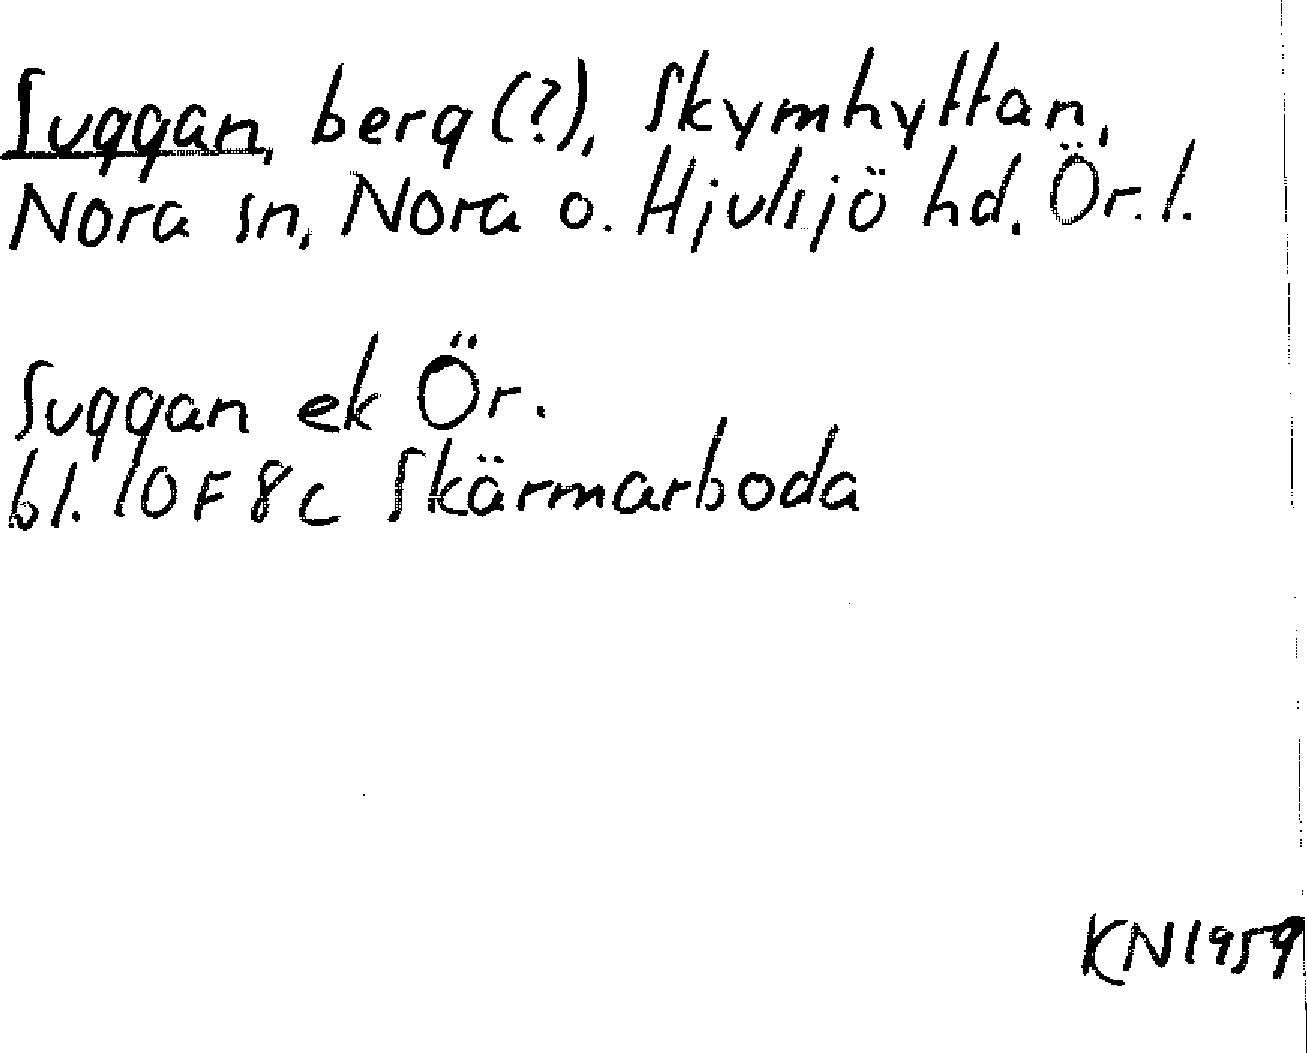 Suggan, berg (?), Skymhyttan,
Nora sn, Nora o. Hjulsjö hd. Ör. l.
Suggan ek Ör.
bl. 10F 8c Skärmarboda
KN1959